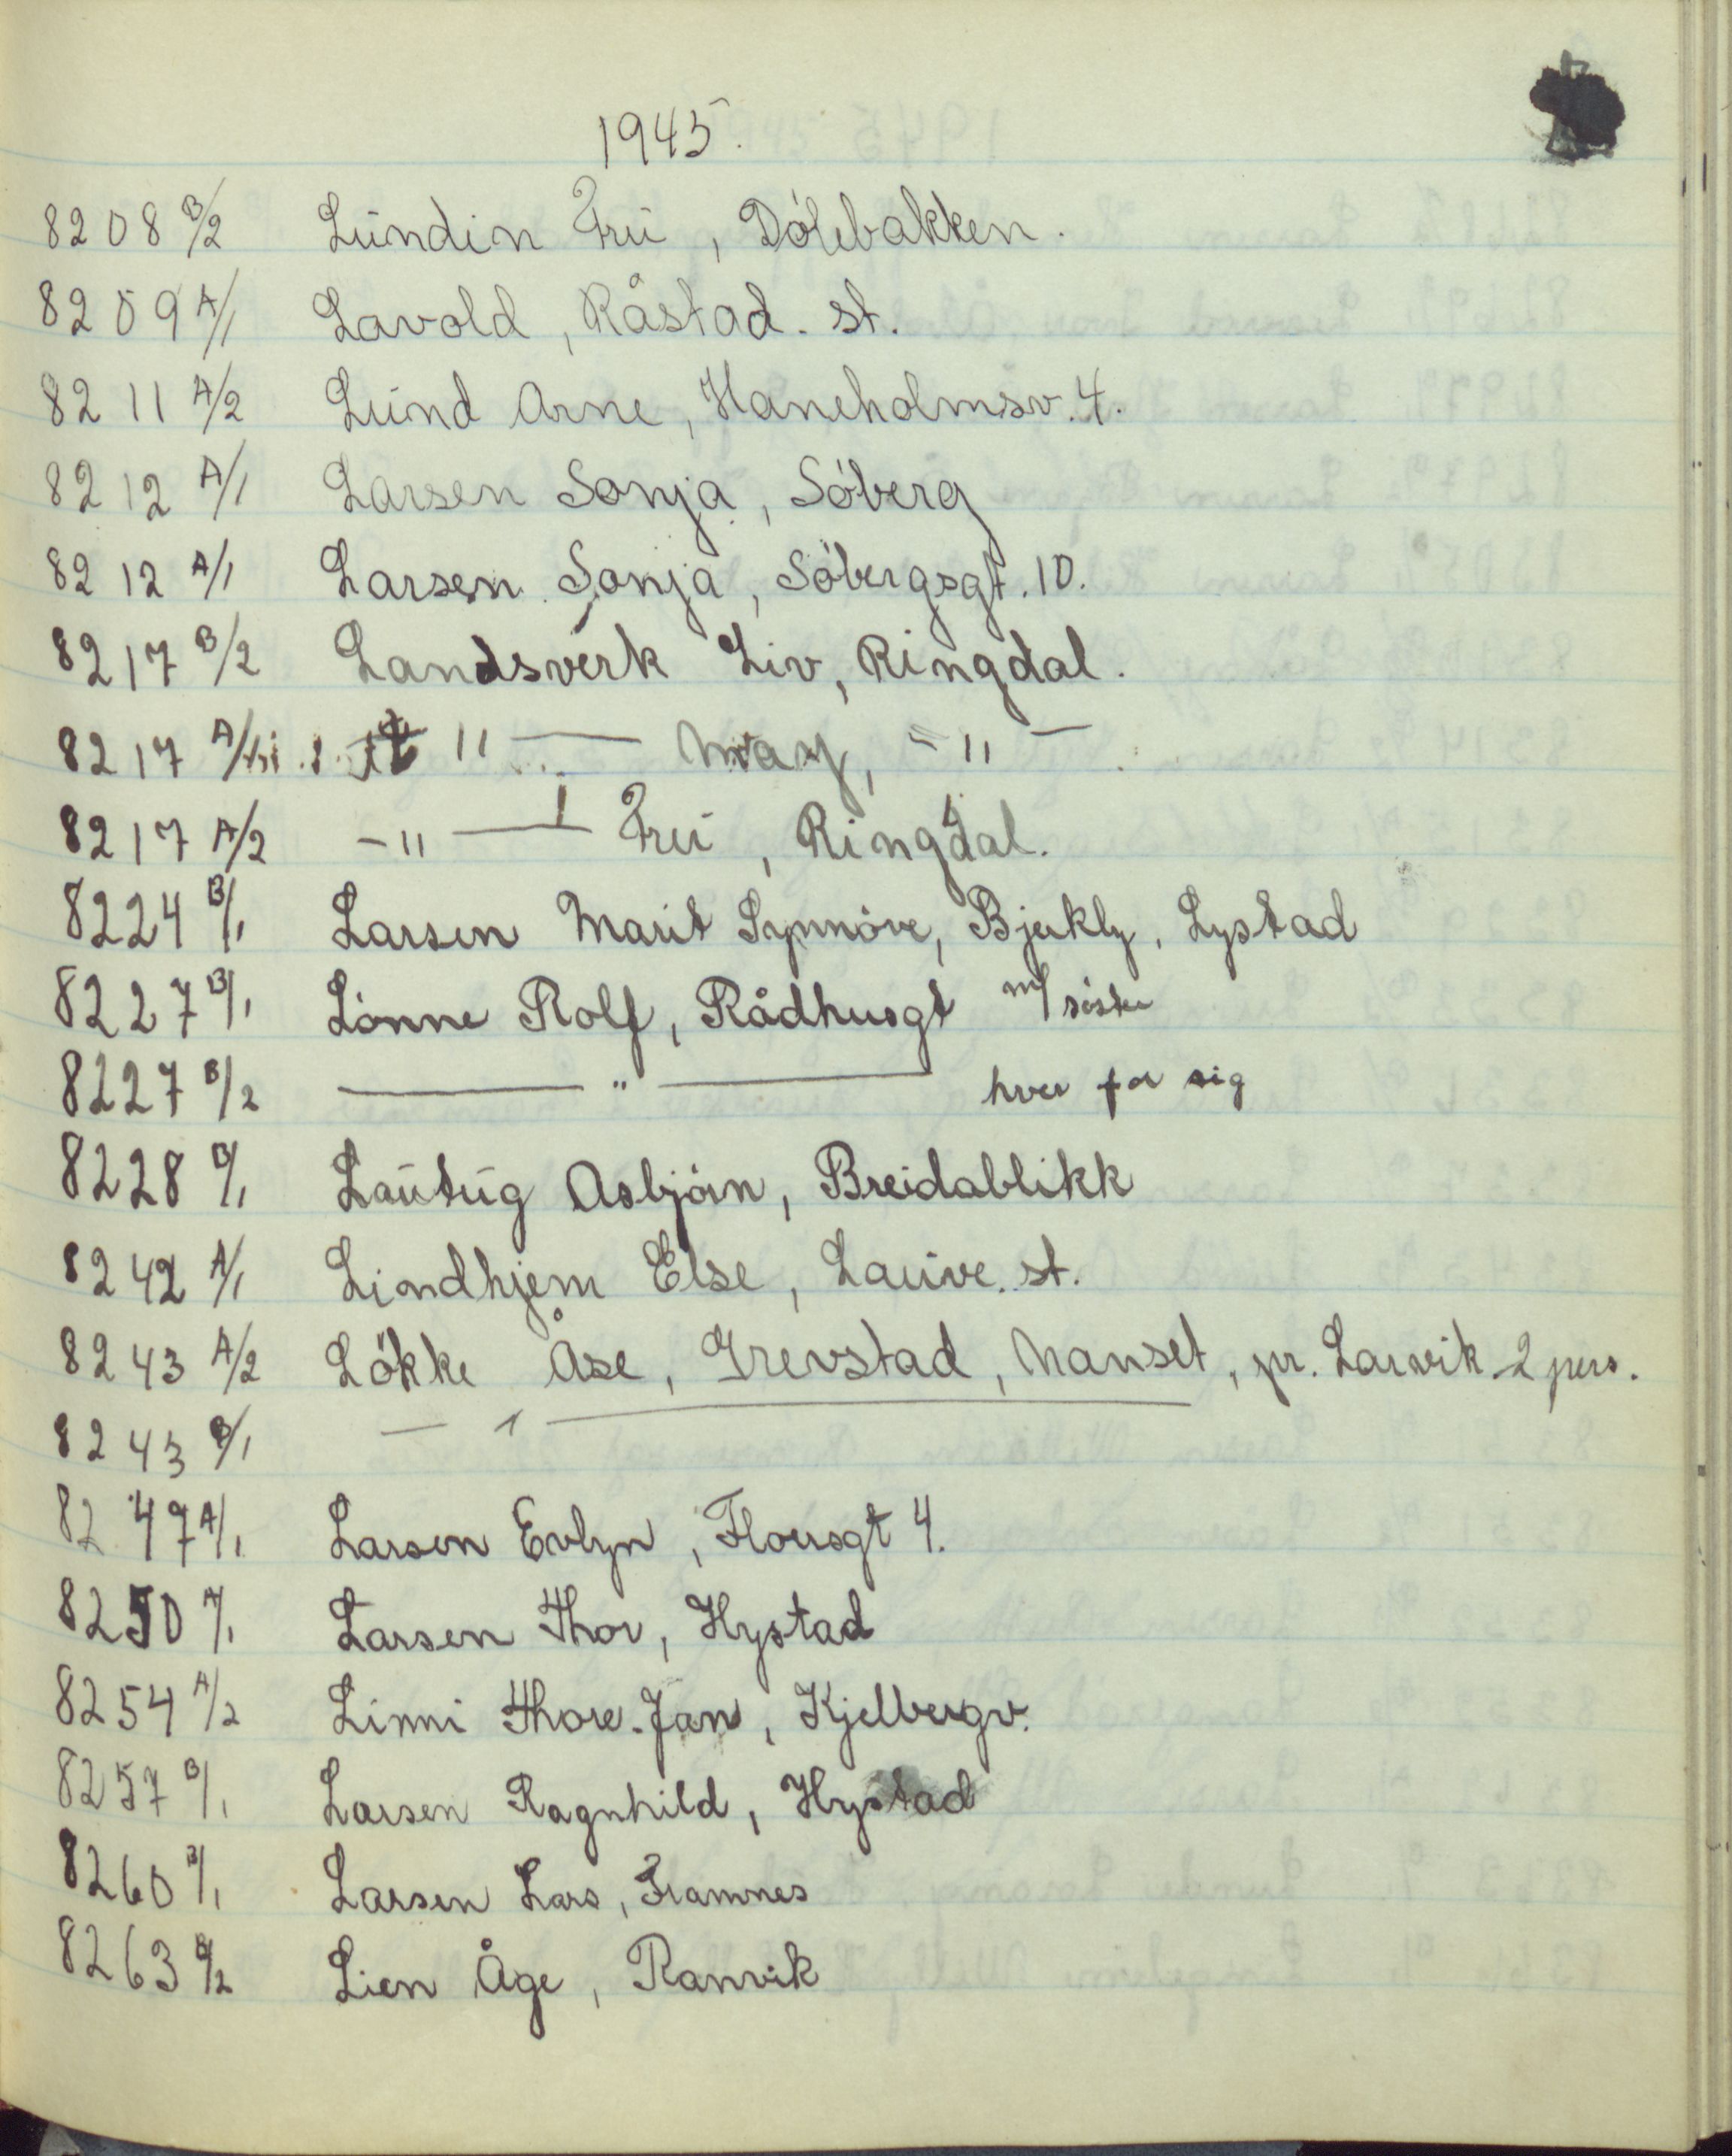 1945.
8208 B/2 Lundin Fru, Dölebakken.
8209 A/1 Lavold, Råstad. st.
8211 A/2 Lund Arne, Haneholmsv. 4.
8212 A/1 Larsen Sonja, Söberg
8212 A/1 Larsen Sonja, Söbergsgt. 10.
8217 B/2 Landsverk Liv, Ringdal.
8217 A/ " — May, - " -
8217 A/2 - " — Fru, Ringdal.
8224 B/1 Larsen Marit Synnöve, Bjerkly, Lystad
8227 B/1 Lönne Rolf, Rådhusgt m/ söster
8227 B/2 — " — hver for sig
8228 B/1 Lautug Asbjörn, Breidablikk
8242 A/1 Lindhjem Else, Lauve. st.
8243 A/2 Lökke Åse, Grevstad, Nanset, pr. Larvik - 2 pers.
8243 B/1 — " —
8247 A/1 Larsen Evlyn, Floersgt 4.
8250 A/1 Larsen Thor, Hystad
8254 A/2 Linni Thore-Jan, Kjelbergv.
8257 B/1 Larsen Ragnhild, Hystad
8260 B/1 Larsen Lars, Framnes
8263 B/2 Lien Åge, Ranvik